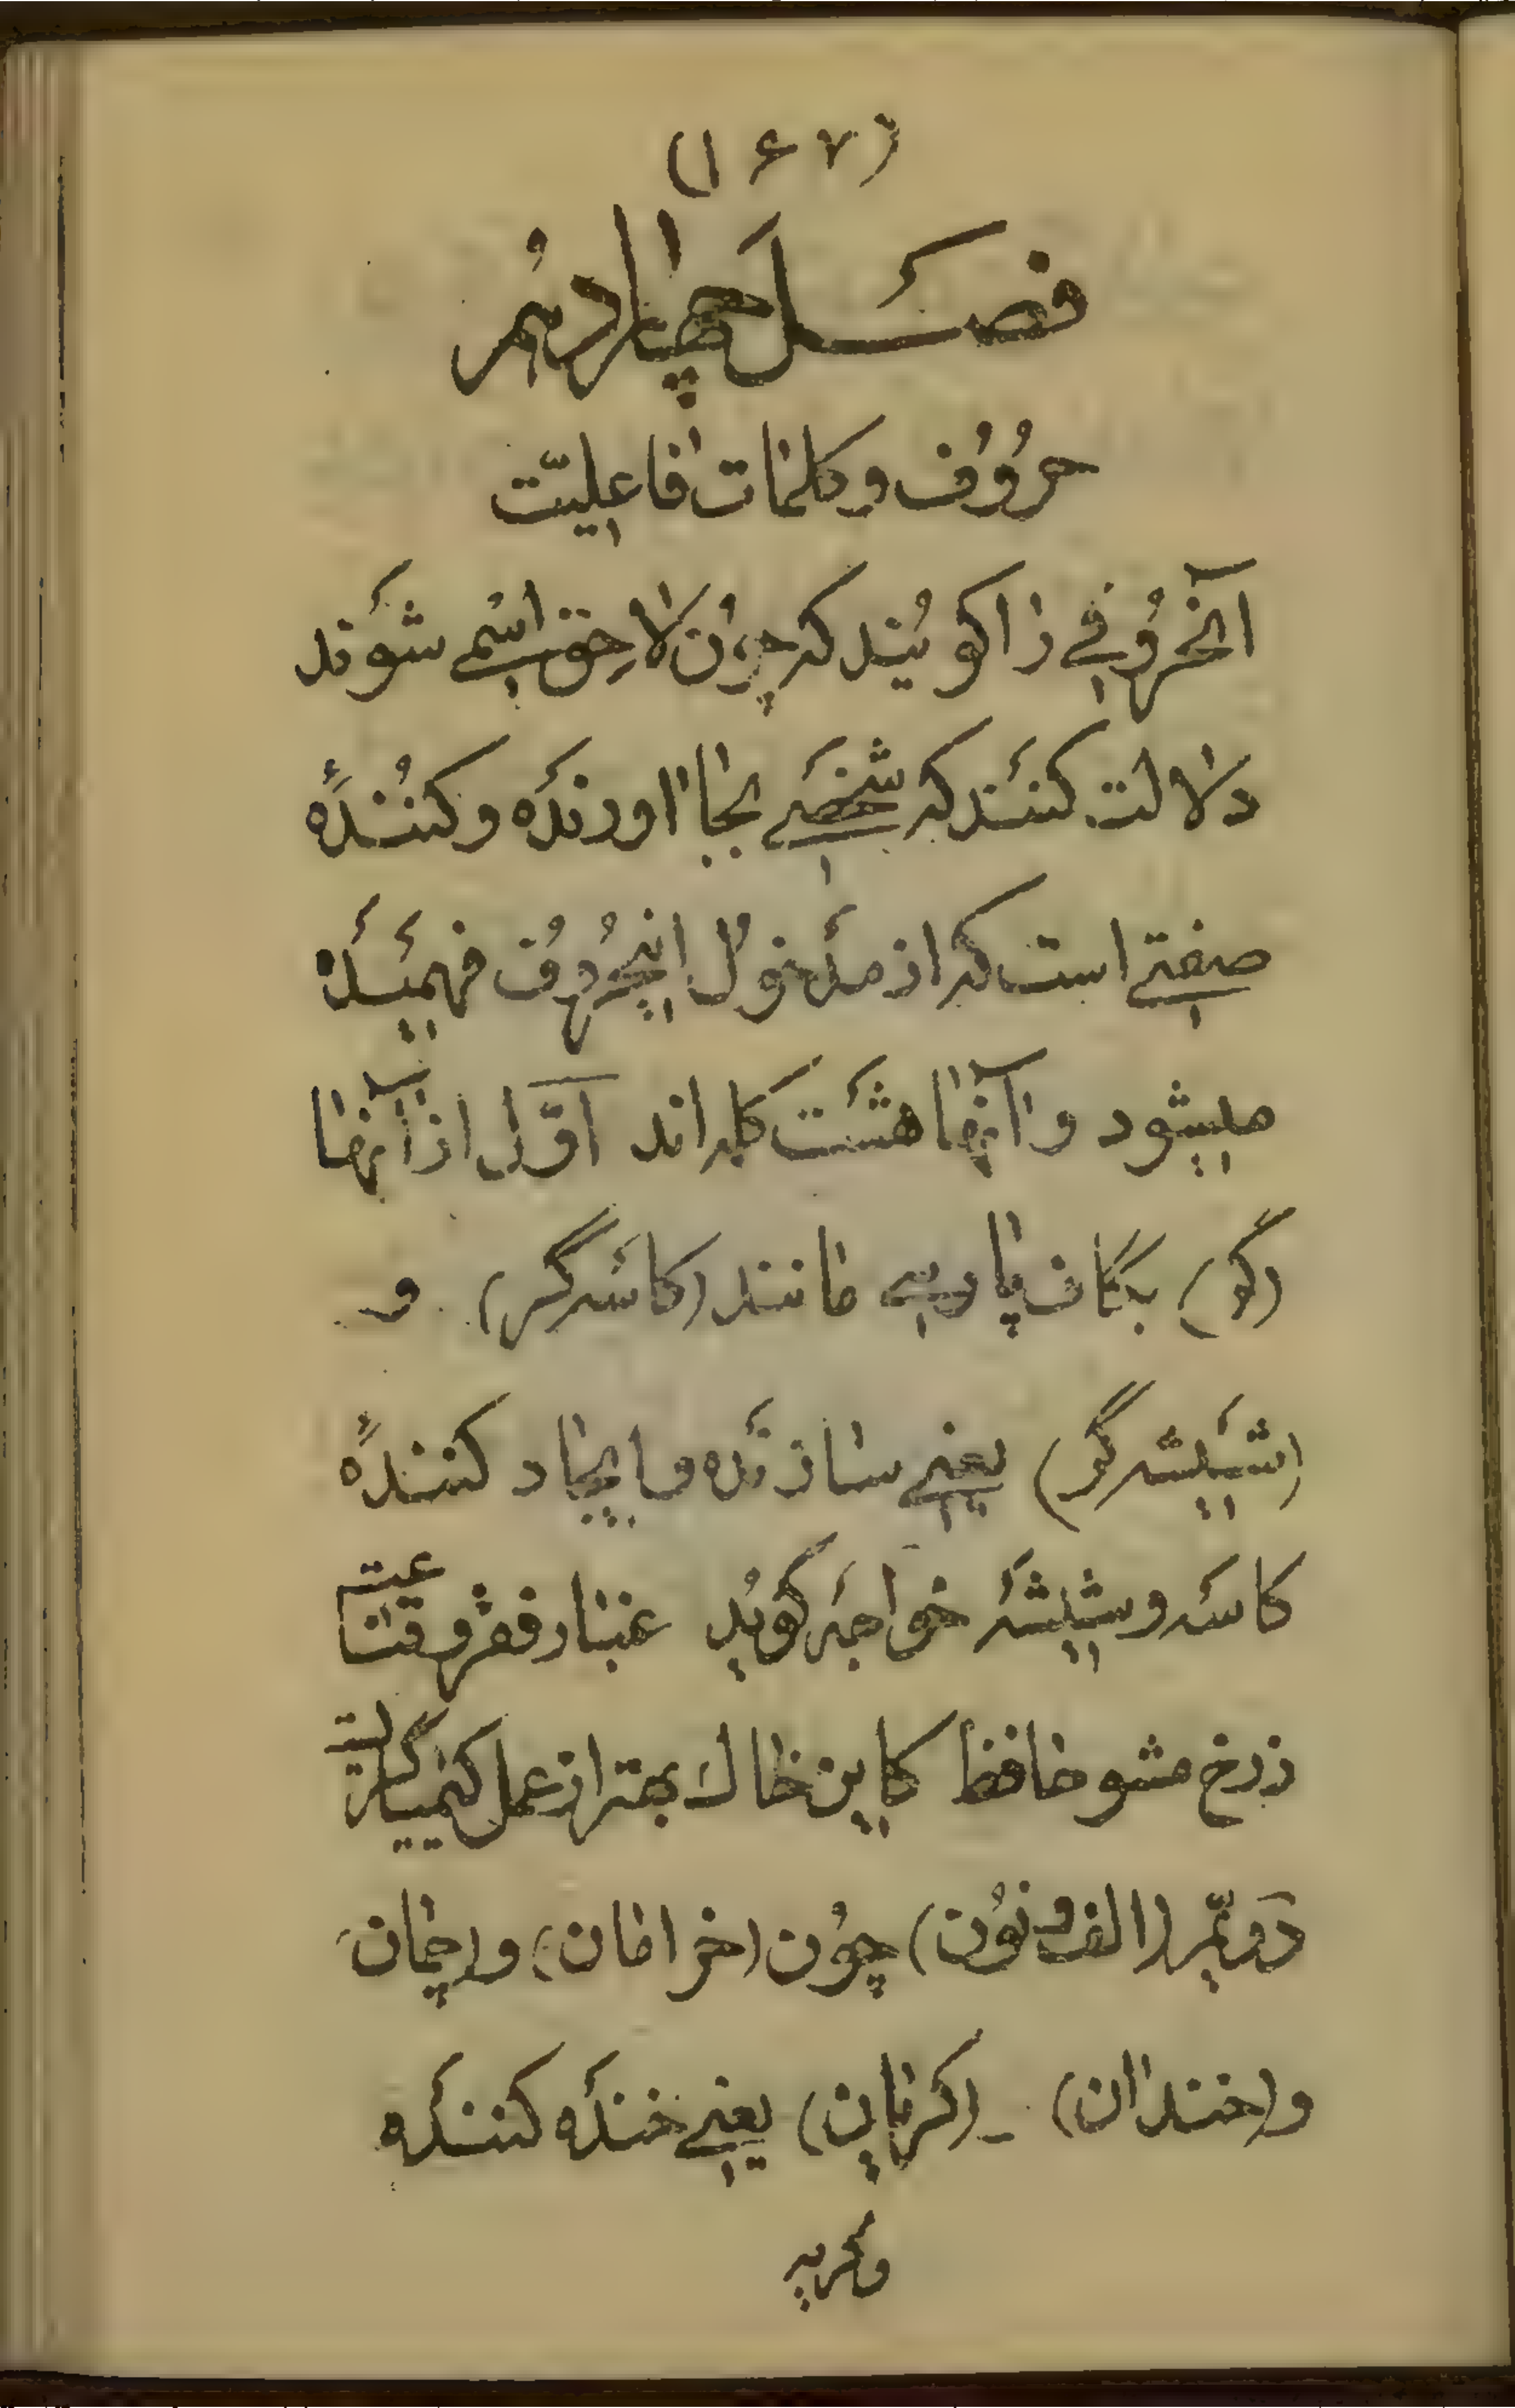 (۱۶۷)
فصَل چهاردهُم
حرُوُف و کلمات فاعِلیّت
آنحرُوفِے را کویُند که چوُن لاحِق اسْمِے شَوند
دلالت کنَند که شخصَےِ بجا اورندَه و کنُندۀ
صفتےِ است که از مدَخوُل اینحرُوُف فهمیَدَه
میشود و آنها هشَت کلمه اند اوّل از آنها
(گر) بگاف پارسِے مانند (کاسَه گر) و
(شیشَه گر) یعنےِ سازنَده و ایجاد کنندۀ
کاسَه و شیشَه خواجَه کویُد غبار فقر و قناعت
ز رخ مشو حافظ کاین خاك بهتر از عمل کیمیاگریت
دَویّم (الف و نوُن) چوُن (خرامان) و (چمان)
و (خندان) ـ (کریان) یعنےِ خندَه کنندَه
وکَریه